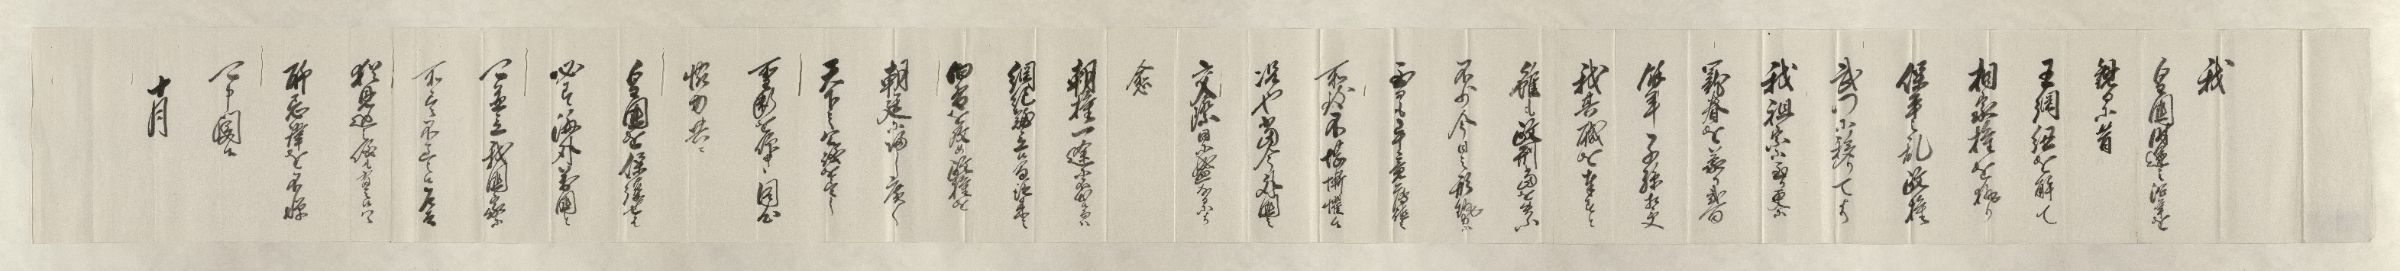 我
皇国時運之沿革を
観るに昔
王綱紐を解て
相家権を執り
保平之乱政権
武門に移りてより
我祖宗に至り更に
寵眷を蒙り二百
余年子孫相受
我其職を奉すと
雖も政刑当を失ふ
不少今日之形勢に
至り候も畢竟薄徳之
所致不堪慚懼候
況や当今外国之
交際日に盛なるにより
愈
朝権一途に出不申候而者
綱紀難立候間従来之
旧習を改め政権を
朝廷に帰し広く
天下之公議を尽し
聖断を仰き同心
協力共に
皇国を保護せは
必す海外万国と
可並立我国家に
所尽不過之候乍去
猶見込之儀も有之候得者
聊忌諱を不憚
可申聞候
十月